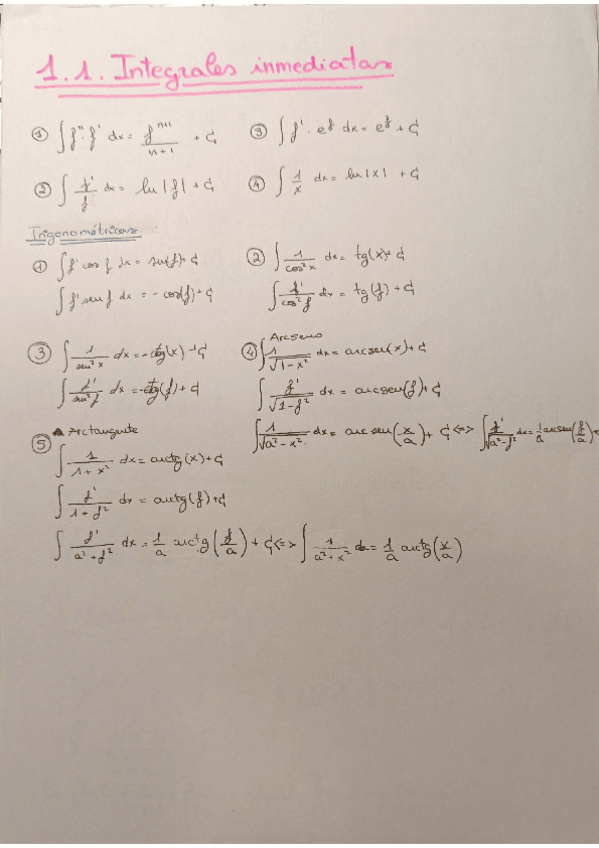 1.1. Integrales inmediatas
① ∫ fⁿ · f' dx = fⁿ⁺¹/(n+1) + C
③ ∫ f' · e^f dx = e^f + C
② ∫ f'/f dx = ln|f| + C
④ ∫ 1/x dx = ln|x| + C
Trigonométricas
① ∫ f' cos f dx = sen(f) + C
∫ f' sen f dx = -cos(f) + C
② ∫ 1/cos²x dx = tg(x) + C
∫ f'/cos²f dx = tg(f) + C
③ ∫ 1/sen²x dx = -ctg(x) + C
∫ f'/sen²f dx = -ctg(f) + C
Arcseno
④ ∫ 1/√(1-x²) dx = arcsen(x) + C
∫ f'/√(1-f²) dx = arcsen(f) + C
∫ 1/√(a²-x²) dx = arcsen(x/a) + C <=> ∫ f'/√(a²-f²) dx = 1/a arcsen(f/a) +
Arctangente
⑤ ∫ 1/(1+x²) dx = arctg(x) + C
∫ f'/(1+f²) dx = arctg(f) + C
∫ f'/(a²+f²) dx = 1/a arctg(f/a) + C <=> ∫ 1/(a²+x²) dx = 1/a arctg(x/a)